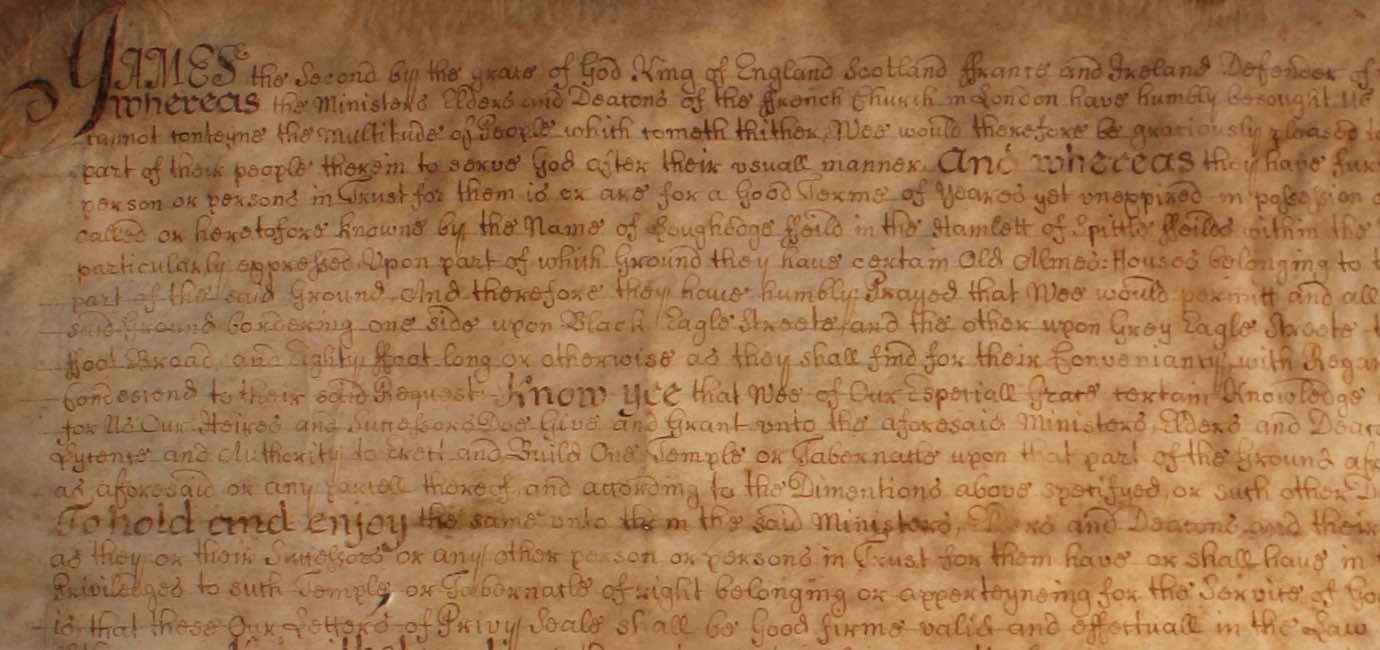 JAMES the Second by the grace of God King of England Scotland ffrance and Ireland Defender of
whereas the Ministers Elders and Deacons of the ffrench Church in London have humbly besought us
cannot conteyne the multitude of People which cometh thither, Wee would therefore be graciously pleased to
part of their people therein to serve God after their usuall manner. And whereas they have fur
person or persons in Trust for them is or are for a Good Terme of Yeares yet unexpired in possession o
called or heretofore knowne by the Name of ffeild in the Hamlett of Spittle ffeilds within the
particularly expressed, Upon part of which Ground they have certain Old Almes-Houses belonging to t
part of the said Ground, And therefore they have humbly Prayed that Wee would permitt and all
said Ground bordering one side upon Black Eagle Streete, and the other upon Grey Eagle Streete
ffoot Broad, and Eighty ffoot long or otherwise as they shall find for their Conveniancy, with Regar
Condescend to their said Request Know yee that Wee of Our Especiall Grace certain Knowledge
for Us Our Heires and Successors Doe Give and Grant unto the aforesaid Ministers, Elders and Deac
Lycence and Authority to Erect and Build One Temple or Tabernacle upon that part of the Ground afo
as aforesaid or any parcell thereof, and according to the Dimentions above specifyed, or such other D
To hold and enjoy the same unto them the said Ministers, Elders and Deacons and their
as they or their Successors or any other person or persons in Trust for them have or shall have in
Priviledges to such Temple or Tabernacle of right belonging or apperteyneing for the Service of Go
is that these Our Letters of Privy Seale shall be Good firme valid and effectuall in the Law